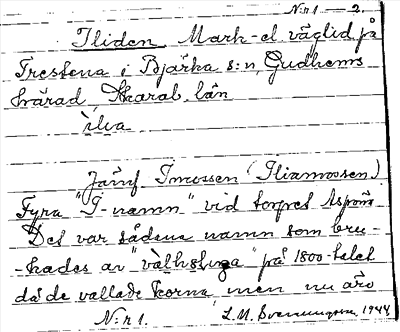 N:r 1 — 2.
Iliden Mark-el. väglid på
Trestena i Bjärka s:n, Gudhems
härad, Skarab. län
ilva
Jämf. Imossen (Iliamossen)
Fyra "I-namn" vid torpet Aspön
Det var sådana namn som bru
-kades av "vallhs" på 1800-talet
då de vallade korna, men nu äro
N:r 1. L. M. Svenungsson, 1944